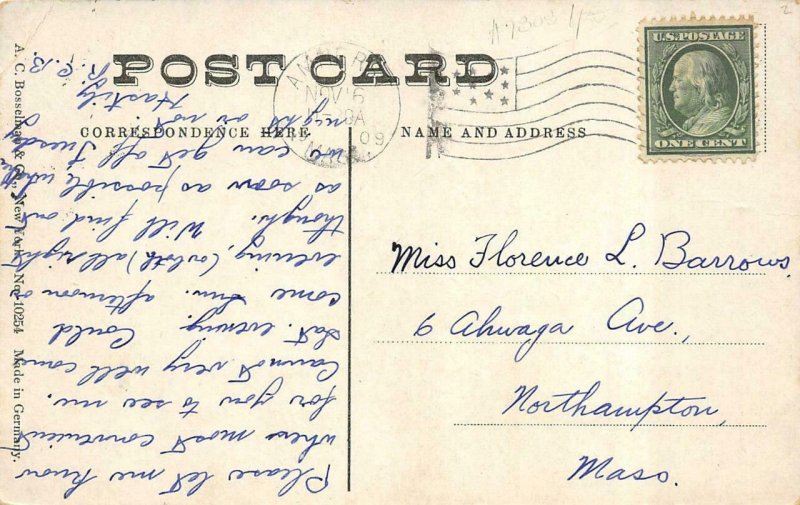 A7303
POST CARD
CORRESPONDENCE HERE
NAME AND ADDRESS
AMHERST
NOV 6
09
MASS.
U.S. POSTAGE
ONE CENT
Miss Florence L. Barrows,
6 Ahwaga Ave.,
Northampton,
Mass.
Please let me know
when most convenient
for you to see me.
Cannot very well come
Sat. evening. Could
come Sun. afternoon or
evening, (or both) all right
though. Will find out
as soon as possible whether
we can get off Tuesday
night or not.
Hastily
R.C.B.
A. C. Bosselman & Co., New York. No. 10254 Made in Germany.